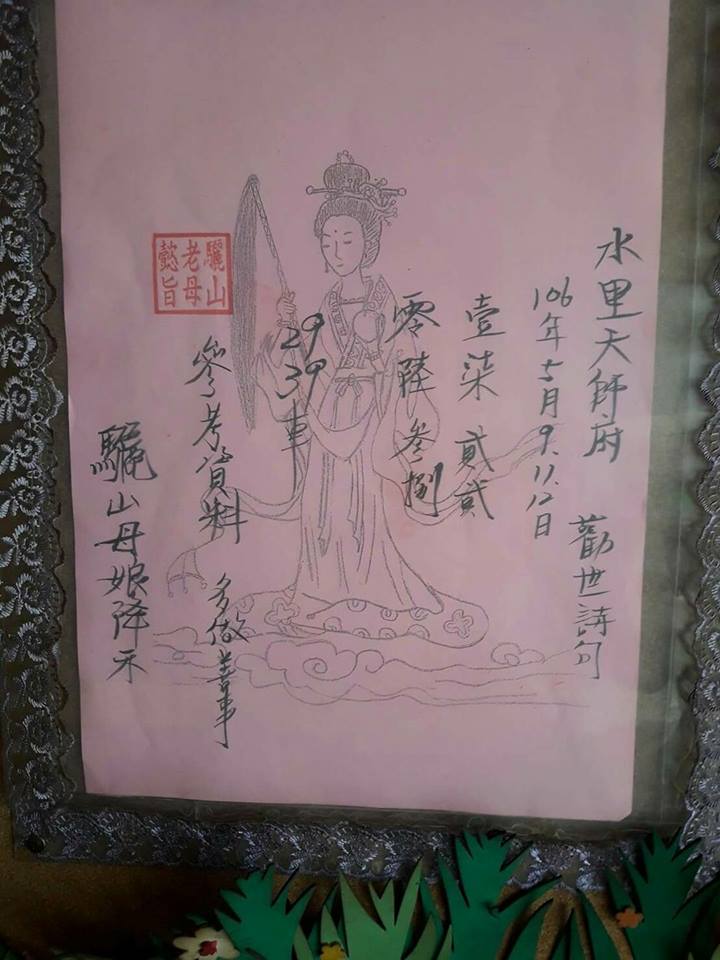 水里天師府
106年5月9.11.12日
勸世講句
壹柒貳貳
零陸叁捌
29
39車
參考資料
多做善事
驪山老母懿旨
驪山母娘降示